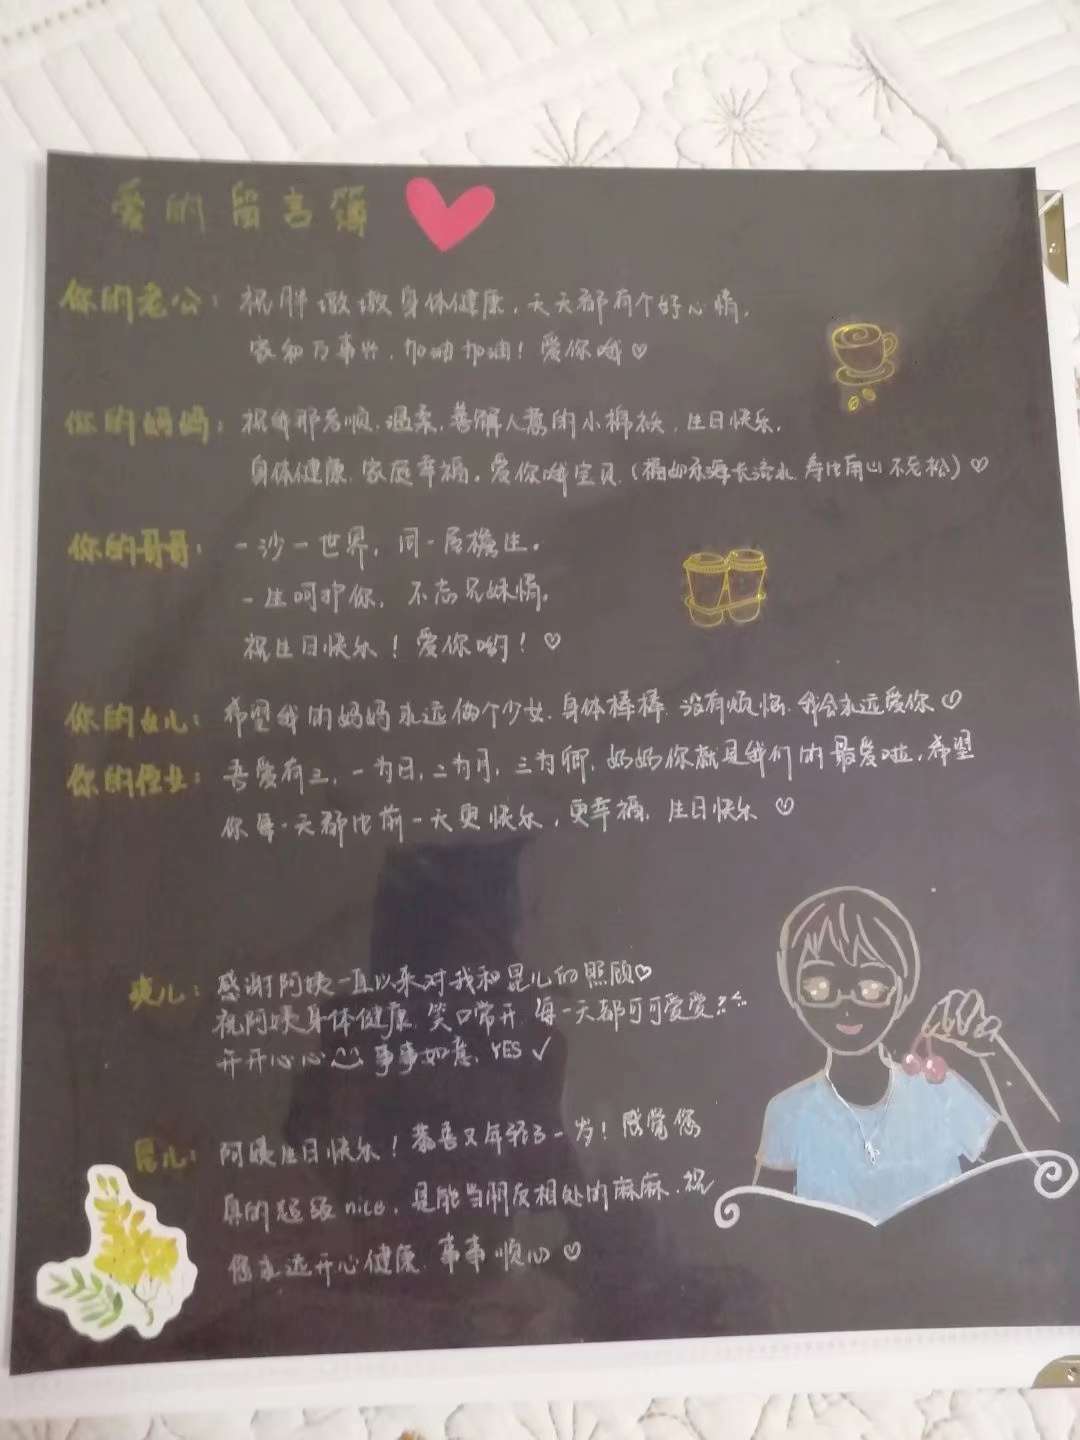 爱的留言簿
你的老公：祝胖墩墩身体健康，天天都有个好心情，
家和万事兴，加油加油！爱你哦♡
你的妈妈：祝我那孝顺.温柔.善解人意的小棉袄，生日快乐.
身体健康.家庭幸福。爱你哦宝贝.(福如东海长流水.寿比南山不老松)♡
你的哥哥：一沙一世界，同一屋檐生。
一生呵护你，不忘兄妹情。
祝生日快乐！爱你哟！♡
你的女儿：希望我的妈妈永远做个少女.身体棒棒.没有烦恼.我会永远爱你♡
你的侄女：吾爱有三，一为日，二为月，三为卿，妈妈你就是我们的最爱啦，希望
你每一天都比前一天更快乐，更幸福，生日快乐♡
爽儿：感谢阿姨一直以来对我和昆儿的照顾♡
祝阿姨身体健康.笑口常开.每一天都可可爱爱
开开心心 事事如意，YES✓
昆儿：阿姨生日快乐！恭喜又年轻了一岁！感觉您
真的超级nice，是能当朋友相处的麻麻.祝
您永远开心健康.事事顺心♡